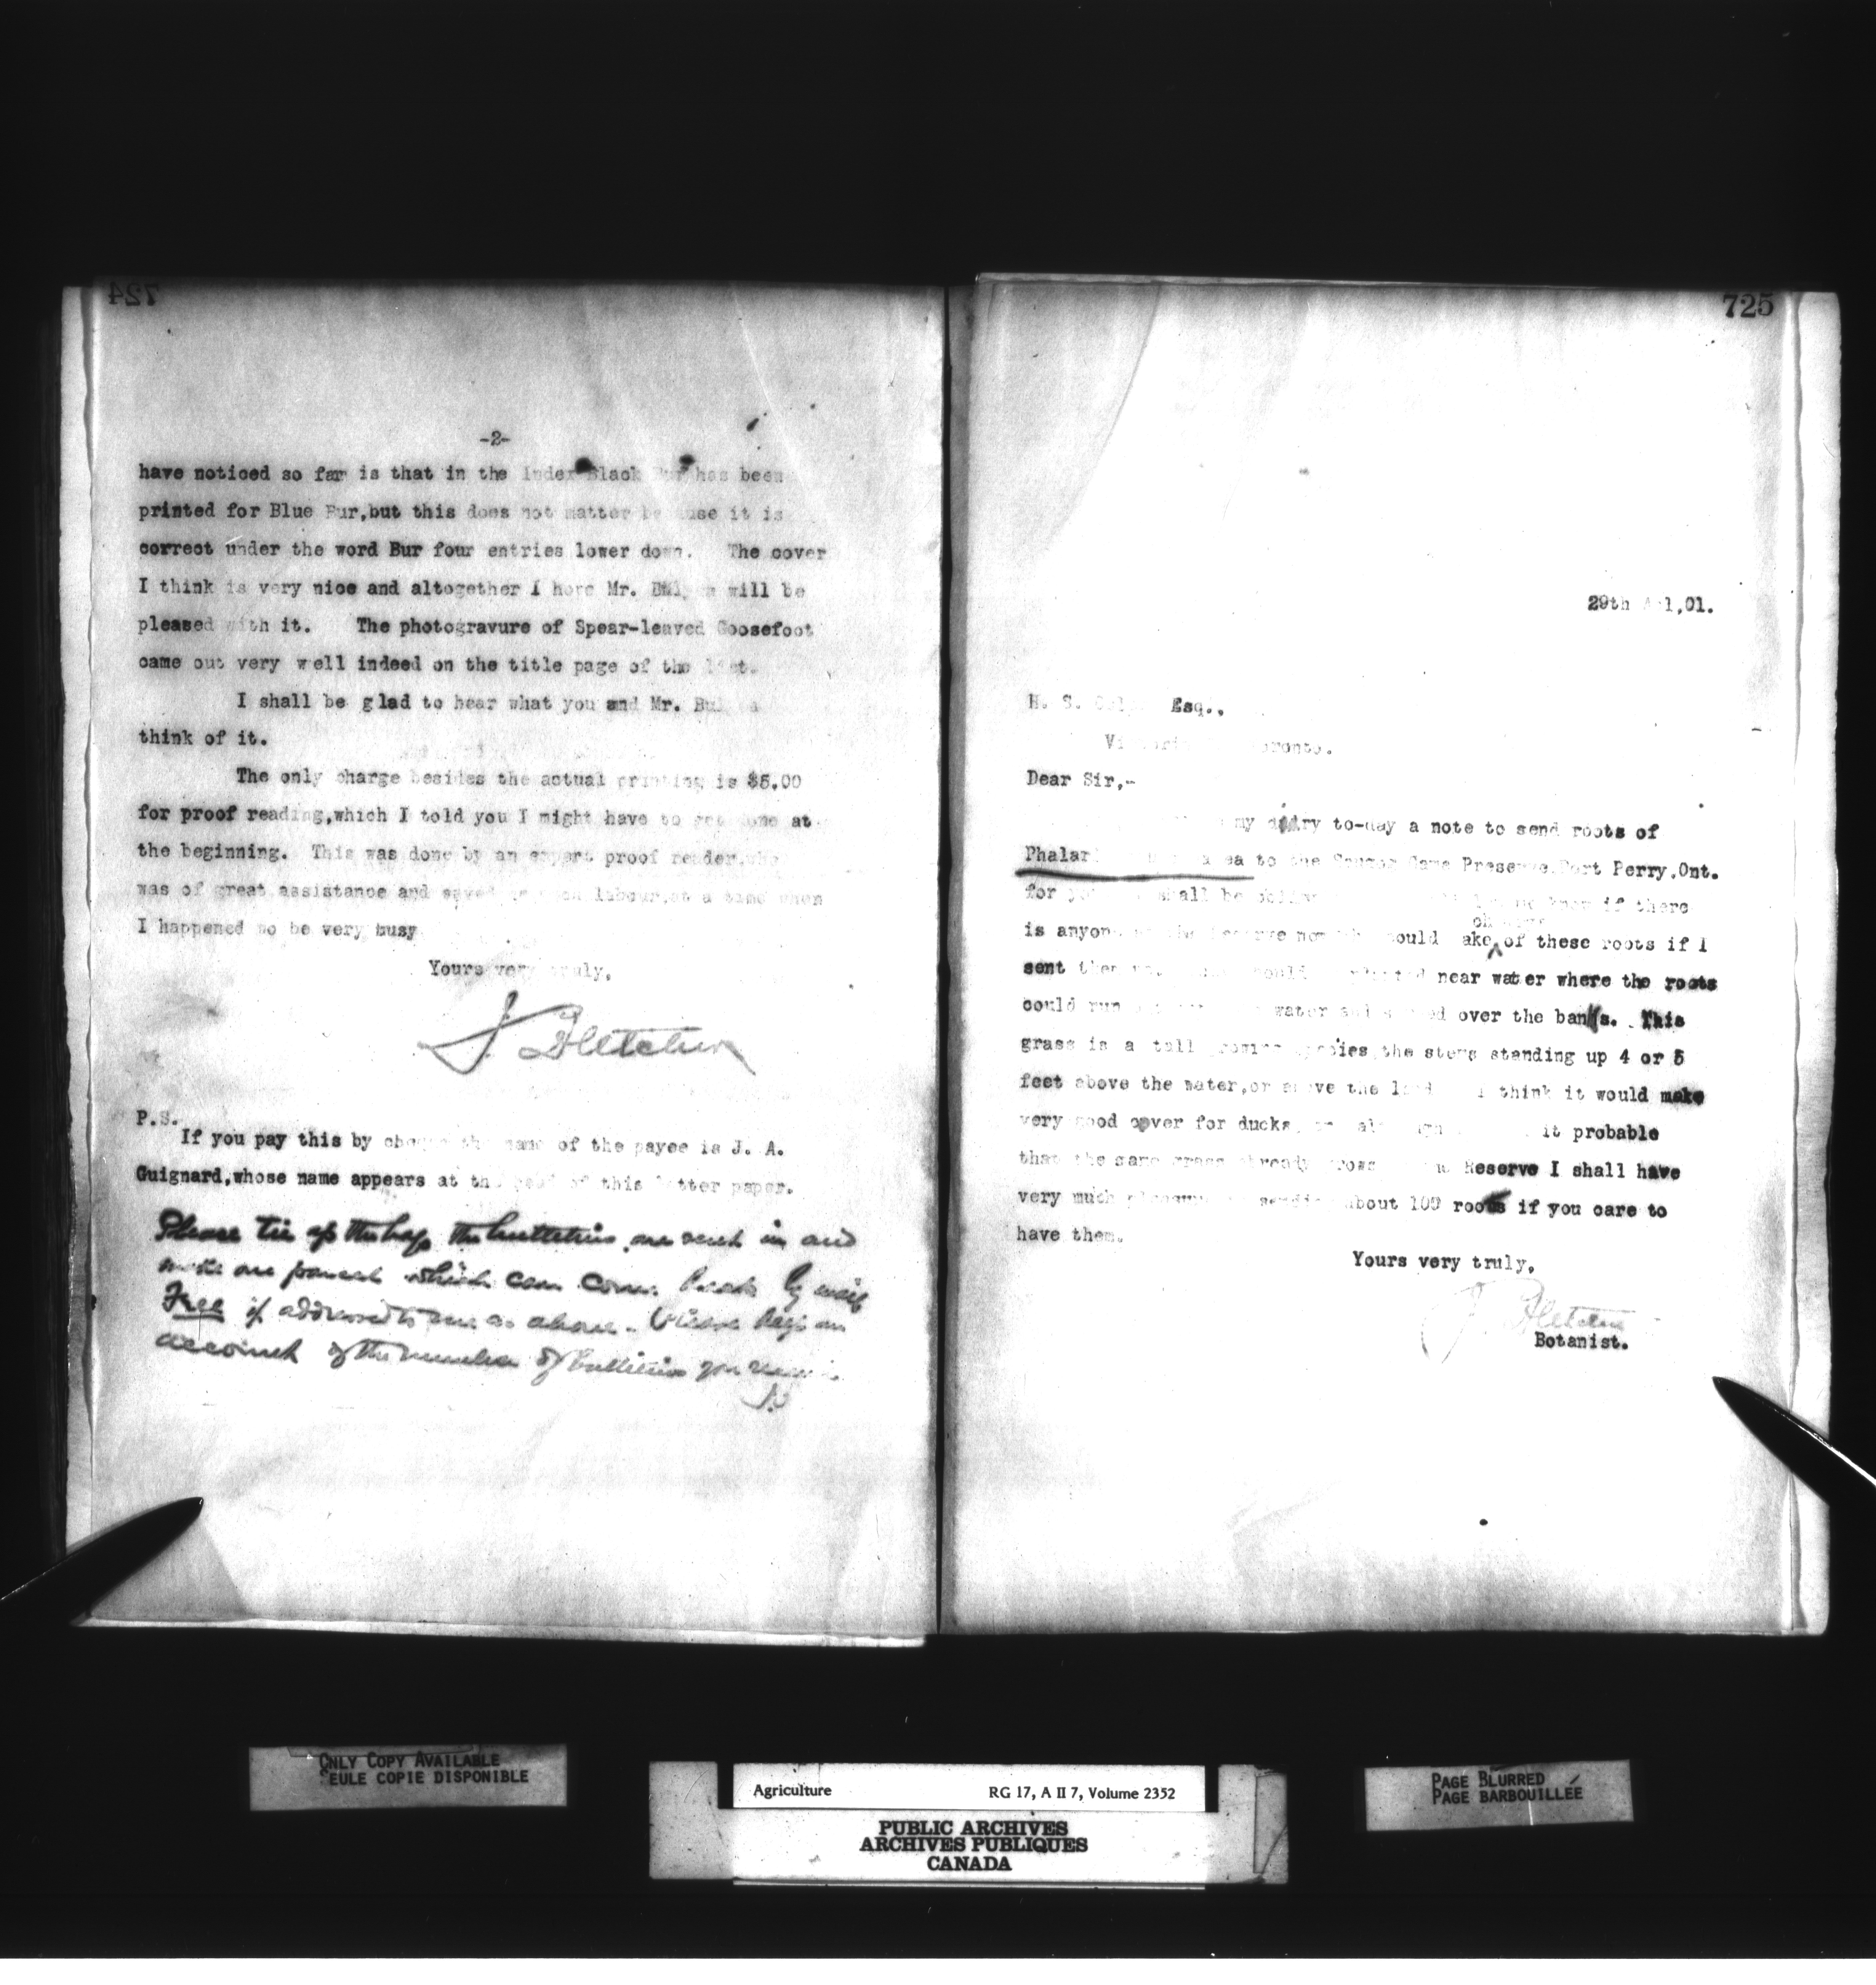 724
-2-
have noticed so far is that in the Index Black Bur has been
printed for Blue Bur,but this does not matter because it is
correct under the word Bur four entries lower down. The cover
I think is very nice and altogether I hope Mr. will be
pleased with it. The photogravure of Spear-leaved Goosefoot
came out very well indeed on the title page of the list.
I shall be glad to hear what you and Mr.
think of it.
The only charge besides the actual printing is $5.00
for proof reading,which I told you I might have to get done at
the beginning. This was done by an expert proof reader,who
was of great assistance and saved me much labour,at a time when
I happened to be very busy
Yours very truly,
J. Fletcher
P.S.
If you pay this by cheque the name of the payee is J. A.
Guignard,whose name appears at the head of this letter paper.
Please tie up the bags the bulletins are sent in and
make one parcel which can come back by mail
Free if addressed to me as above. Please keep an
account of the number of bulletins you receive.
J.F.
725
29th 01.
H. S. Esq.,
Toronto.
Dear Sir,-
my diary to-day a note to send roots of
to the Game Preserve,Port Perry,Ont.
for shall be know if there
is anyone now could take charge of these roots if I
sent them near water where the roots
could run water and over the banks. This
grass is a tall growing species,the stems standing up 4 or 5
feet above the water,or above the land I think it would make
very good cover for ducks, it probable
that the same grass already grows Reserve I shall have
very much pleasure sending about 100 roots if you care to
have them.
Yours very truly,
J. Fletcher
Botanist.
ONLY COPY AVAILABLE
SEULE COPIE DISPONIBLE
Agriculture RG 17, A II 7, Volume 2352
PUBLIC ARCHIVES
ARCHIVES PUBLIQUES
CANADA
PAGE BLURRED
PAGE BARBOUILLÉE